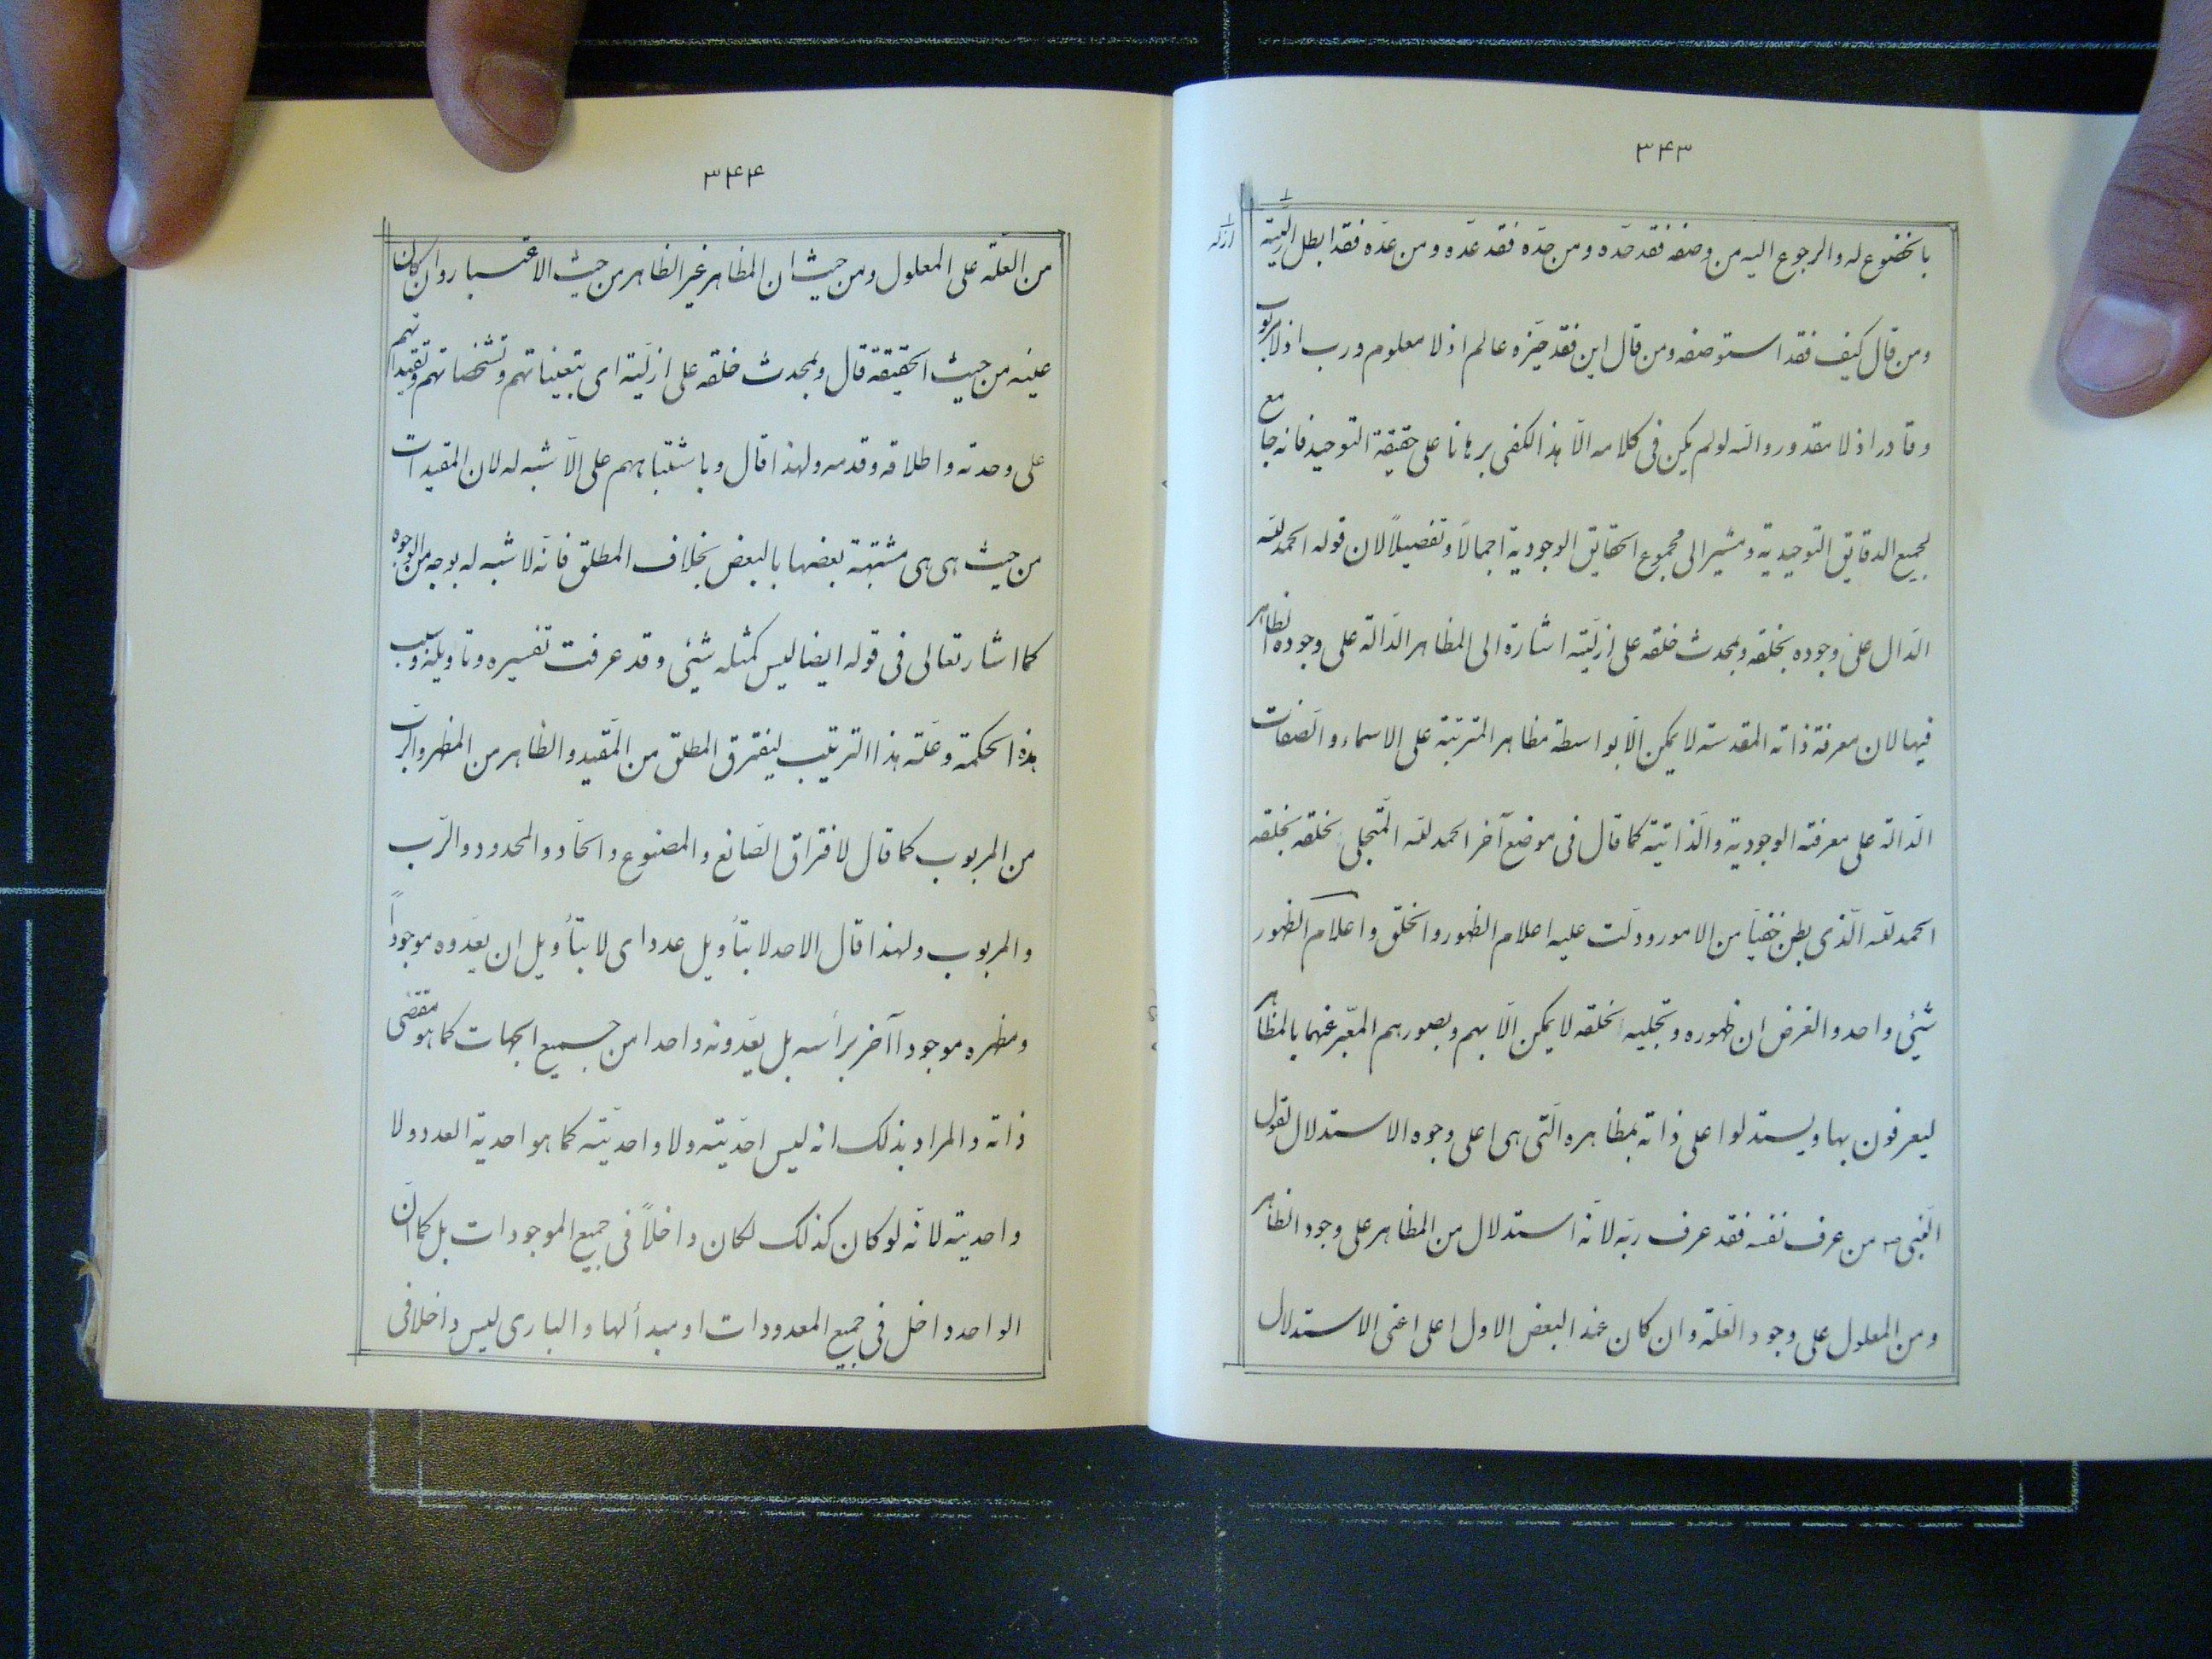 ۳۴۳
بالخضوع له والرجوع الیه من وصفه فقد حدّه ومن حدّه فقد عدّه ومن عدّه فقد ابطل ازلیته
ازله
ومن قال کیف فقد استوصفه ومن قال این فقد حیّزه عالم اذ لا معلوم ورب اذ لا مربوب
وقادر اذ لا مقدور واللّه لو لم یکن فی کلامه الّا هذا لکفی برهانا علی حقیقة التوحید فانه جامع
لجمیع الدقایق التوحیدیة ومشیر الی مجموع الحقایق الوجودیة اجمالاً وتفصیلاً لان قوله الحمد للّه
الدّال علی وجوده بخلقه وبمحدث خلقه علی ازلیّته اشارة الی المظاهر الدّالة علی وجوده الظاهر
فیها لان معرفة ذاته المقدسة لا یمکن الّا بواسطة مظاهر المترتبّة علی الاسماء والصّفات
الدّالة علی معرفته الوجودیة والذّاتیّة کما قال فی موضع آخر الحمد للّه المتّجلی لخلقه بخلقه
الحمد للّه الّذی بطن خفیّات الامور ودلّت علیه اعلام الظهور والخلق واعلام الظهور
شیئی واحد والغرض ان ظهوره وتجلیه لخلقه لا یمکن الّا بهم وبصورهم المعبّر عنهما بالمظاهر
لیعرفون بها ویستدلوا علی ذاته بمظاهره الّتی هی اعلی وجوه الاستدلال لقول
النّبی ص من عرف نفسه فقد عرف ربّه لانّه استدلال من المظاهر علی وجود الظاهر
ومن المعلول علی وجود العلّة وان کان عند البعض الاول اعلی اعنی الاستدلال
۳۴۴
من العلّة علی المعلول ومن حیث ان المظاهر غیر الظاهر من حیث الاعتبار وان کان
عینه من حیث الحقیقة قال وبمحدث خلقه علی ازلیّته ای بتعیناتهم وتشخصاتهم وتقیداتهم
علی وحدته واطلاقه وقدمه ولهذا قال وباشتباههم علی الّا شبه له لان المقیدات
من حیث هی هی مشتبهة بعضها بالبعض بخلاف المطلق فانّه لا شبه له بوجه من الوجوه
کما اشار تعالی فی قوله ایضا لیس کمثله شیئی وقد عرفت تفسیره وتاویله وسبب
هذه الحکمة وعلّة هذا الترتیب لیفترق المطلق من المقّید والظاهر من المظهر والربّ
من المربوب کما قال لافتراق الصّانع والمصنوع والحّاد والمحدود والرّب
والمربوب ولهذا قال الاحد لا بتأویل عدد ای لا بتأویل ان یعّدوه موجوداً
ومظهره موجودا آخر برأسه بل یعّدونه واحدا من جمیع الجهات کما هو مقتضی
ذاته والمراد بذلک انه لیس احدّیته ولا واحدیّته کما هو احدیة العدد ولا
واحدیته لانّه لو کان کذلک لکان داخلاً فی جمیع الموجودات بل کما انّ
الواحد داخل فی جمیع المعدودات او مبدألها والباری لیس داخلا فی